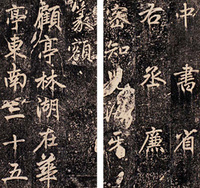 中書省
右丞廉
密知
篆額
顧亭林湖在華
亭東南三十五